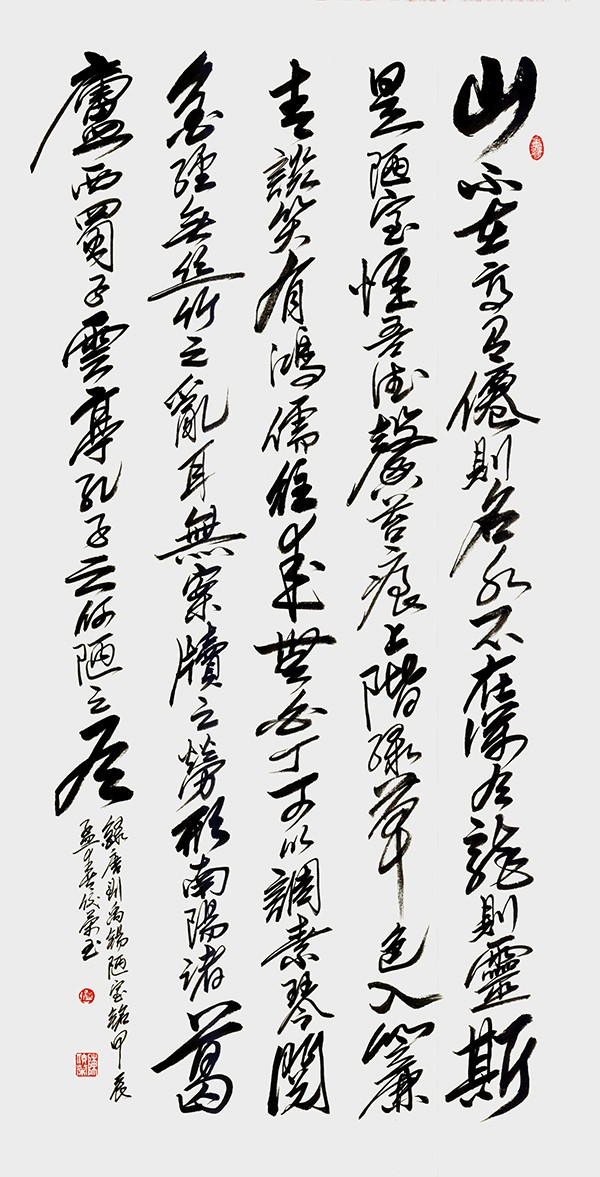 山不在高有僊則名水不在深有龍則靈斯
是陋室惟吾德馨苔痕上階綠草色入簾
青談笑有鴻儒往來無白丁可以調素琴閱
金經無絲竹之亂耳無案牘之勞形南陽諸葛
廬西蜀子雲亭孔子云何陋之有
錄唐刘禹锡陋室銘甲辰
孟